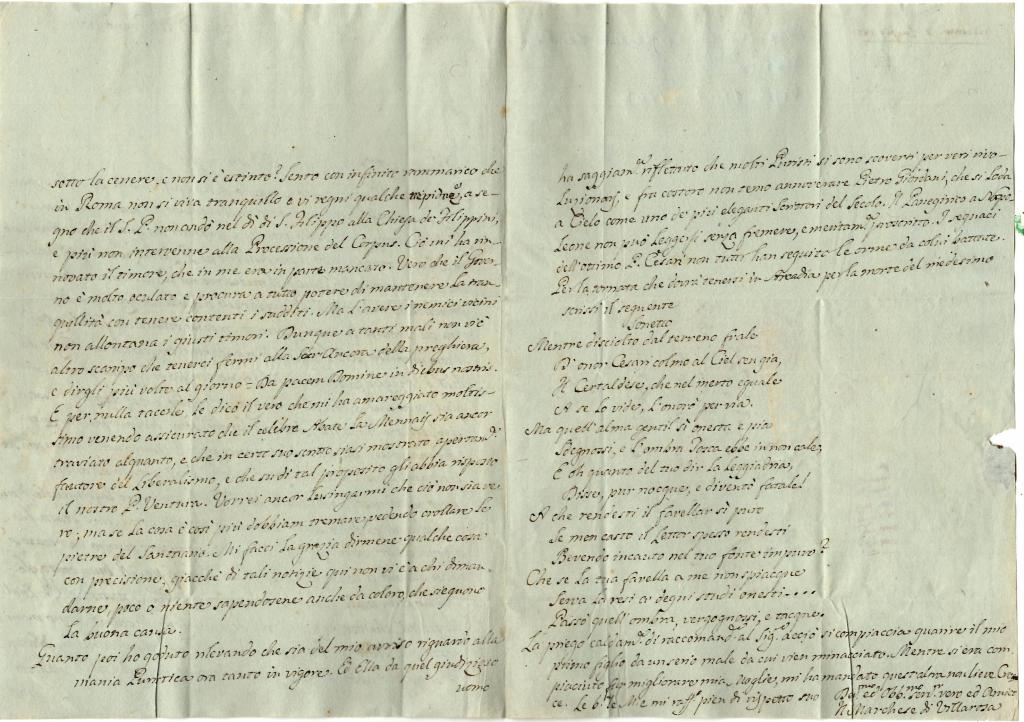 sotto la cenere, e non si è estinto? Sento con infinito rammarico che
in Roma non si viva tranquillo e vi regni qualche trepidaz.e, a se-
gno che il S. P. non andò nel dì di S. Filippo alla Chiesa de' Filippini,
e poi non intervenne alla Processione del Corpus. Ciò mi ha rin-
novato il timore, che in me era in parte mancato. Vero che il Gover-
no è molto oculato e procura a tutto potere di mantenere la tran-
quillità con tenere contenti i sudditi. Ma l'avere i nemici vicini
non allontana i giusti timori. Dunque a tanti mali non v'è
altro scampo che tenerci fermi alla Sacr'Ancora della preghiera,
e dirgli più volte al giorno = Da pacem Domine in diebus nostris.
E per nulla tacerle, le dico il vero che mi ha amareggiato moltis-
simo venendo assicurato che il celebre Abate La Mennais sia ancor
traviato alquanto, e che in cert suo scritto siasi mostrato apertam.e
fautore del Liberalismo, e che su di tal proposito gli abbia risposto
il nostro P. Ventura. Vorrei ancor lusingarmi che ciò non sia ve
ro; ma se la cosa è così più dobbiam tremare vedendo crollare le
pietre del Santuario. Mi facci la grazia dirmene qualche cosa
con precisione, giacchè di tali notizie qui non vi è a chi diman-
darne, poco o niente sapendosene anche da coloro, che sieguono
la buona causa.
Quanto poi ho goduto rilevando che sia del mio avviso riguardo alla
mania Puristica ora tanto in vigore. Ed Ella da quel giudizioso
uomo
ha saggiam.e riflettuto che molti Puristi si sono scoverti per veri rivo-
luzionarj, e fra costoro non temo annoverare Pietro Giordani, che si loda
a Cielo come uno de' più eleganti Scrittori del Secolo. Il Panegirico a Napo-
leone non può leggersi senza fremere, e meritam.e proscritto. I seguaci
dell'ottimo P. Cesari non tutti han seguito le orme da colui battute.
Per la tornata che dovrà tenersi in Arcadia per la morte del medesimo
scrissi il seguente
Sonetto
Mentre disciolto dal terreno frale
D'onor Cesari colmo al Ciel sen gia,
Il Certaldese, che nel merto eguale
A se lo vide, l'onorò per via.
Ma quell'alma gentil sì onesta e pia
Sdegnossi, e l'ombra Tosca ebbe in non cale,
E oh quanto del tuo dir la leggiadria,
Disse, pur nocque, e diventò fatale!
A che rendesti il favellar sì puro
Se men casto il Lettor spesso rendesti
Bevendo incauto nel tuo fonte impuro?
Che se la tua favella a me non spiacque
Serva la resi a' degni studi onesti....
Passò quell'ombra, vergognossi, e tacque
La priego caldam.e di raccomand.e al Sig.e acciò si compiaccia guarire il mio
primo figlio da un seno male da cui vien minacciato. Mentre si era com
piaciuto far migliorare mia Moglie, mi ha mandato quest'altra non lieve Cro-
ce. Le b.o le M.i e mi raff. pien di rispetto suo
Dev.mo ed Obb.mo Ser.re vero ed Amico
Il Marchese di Villarosa